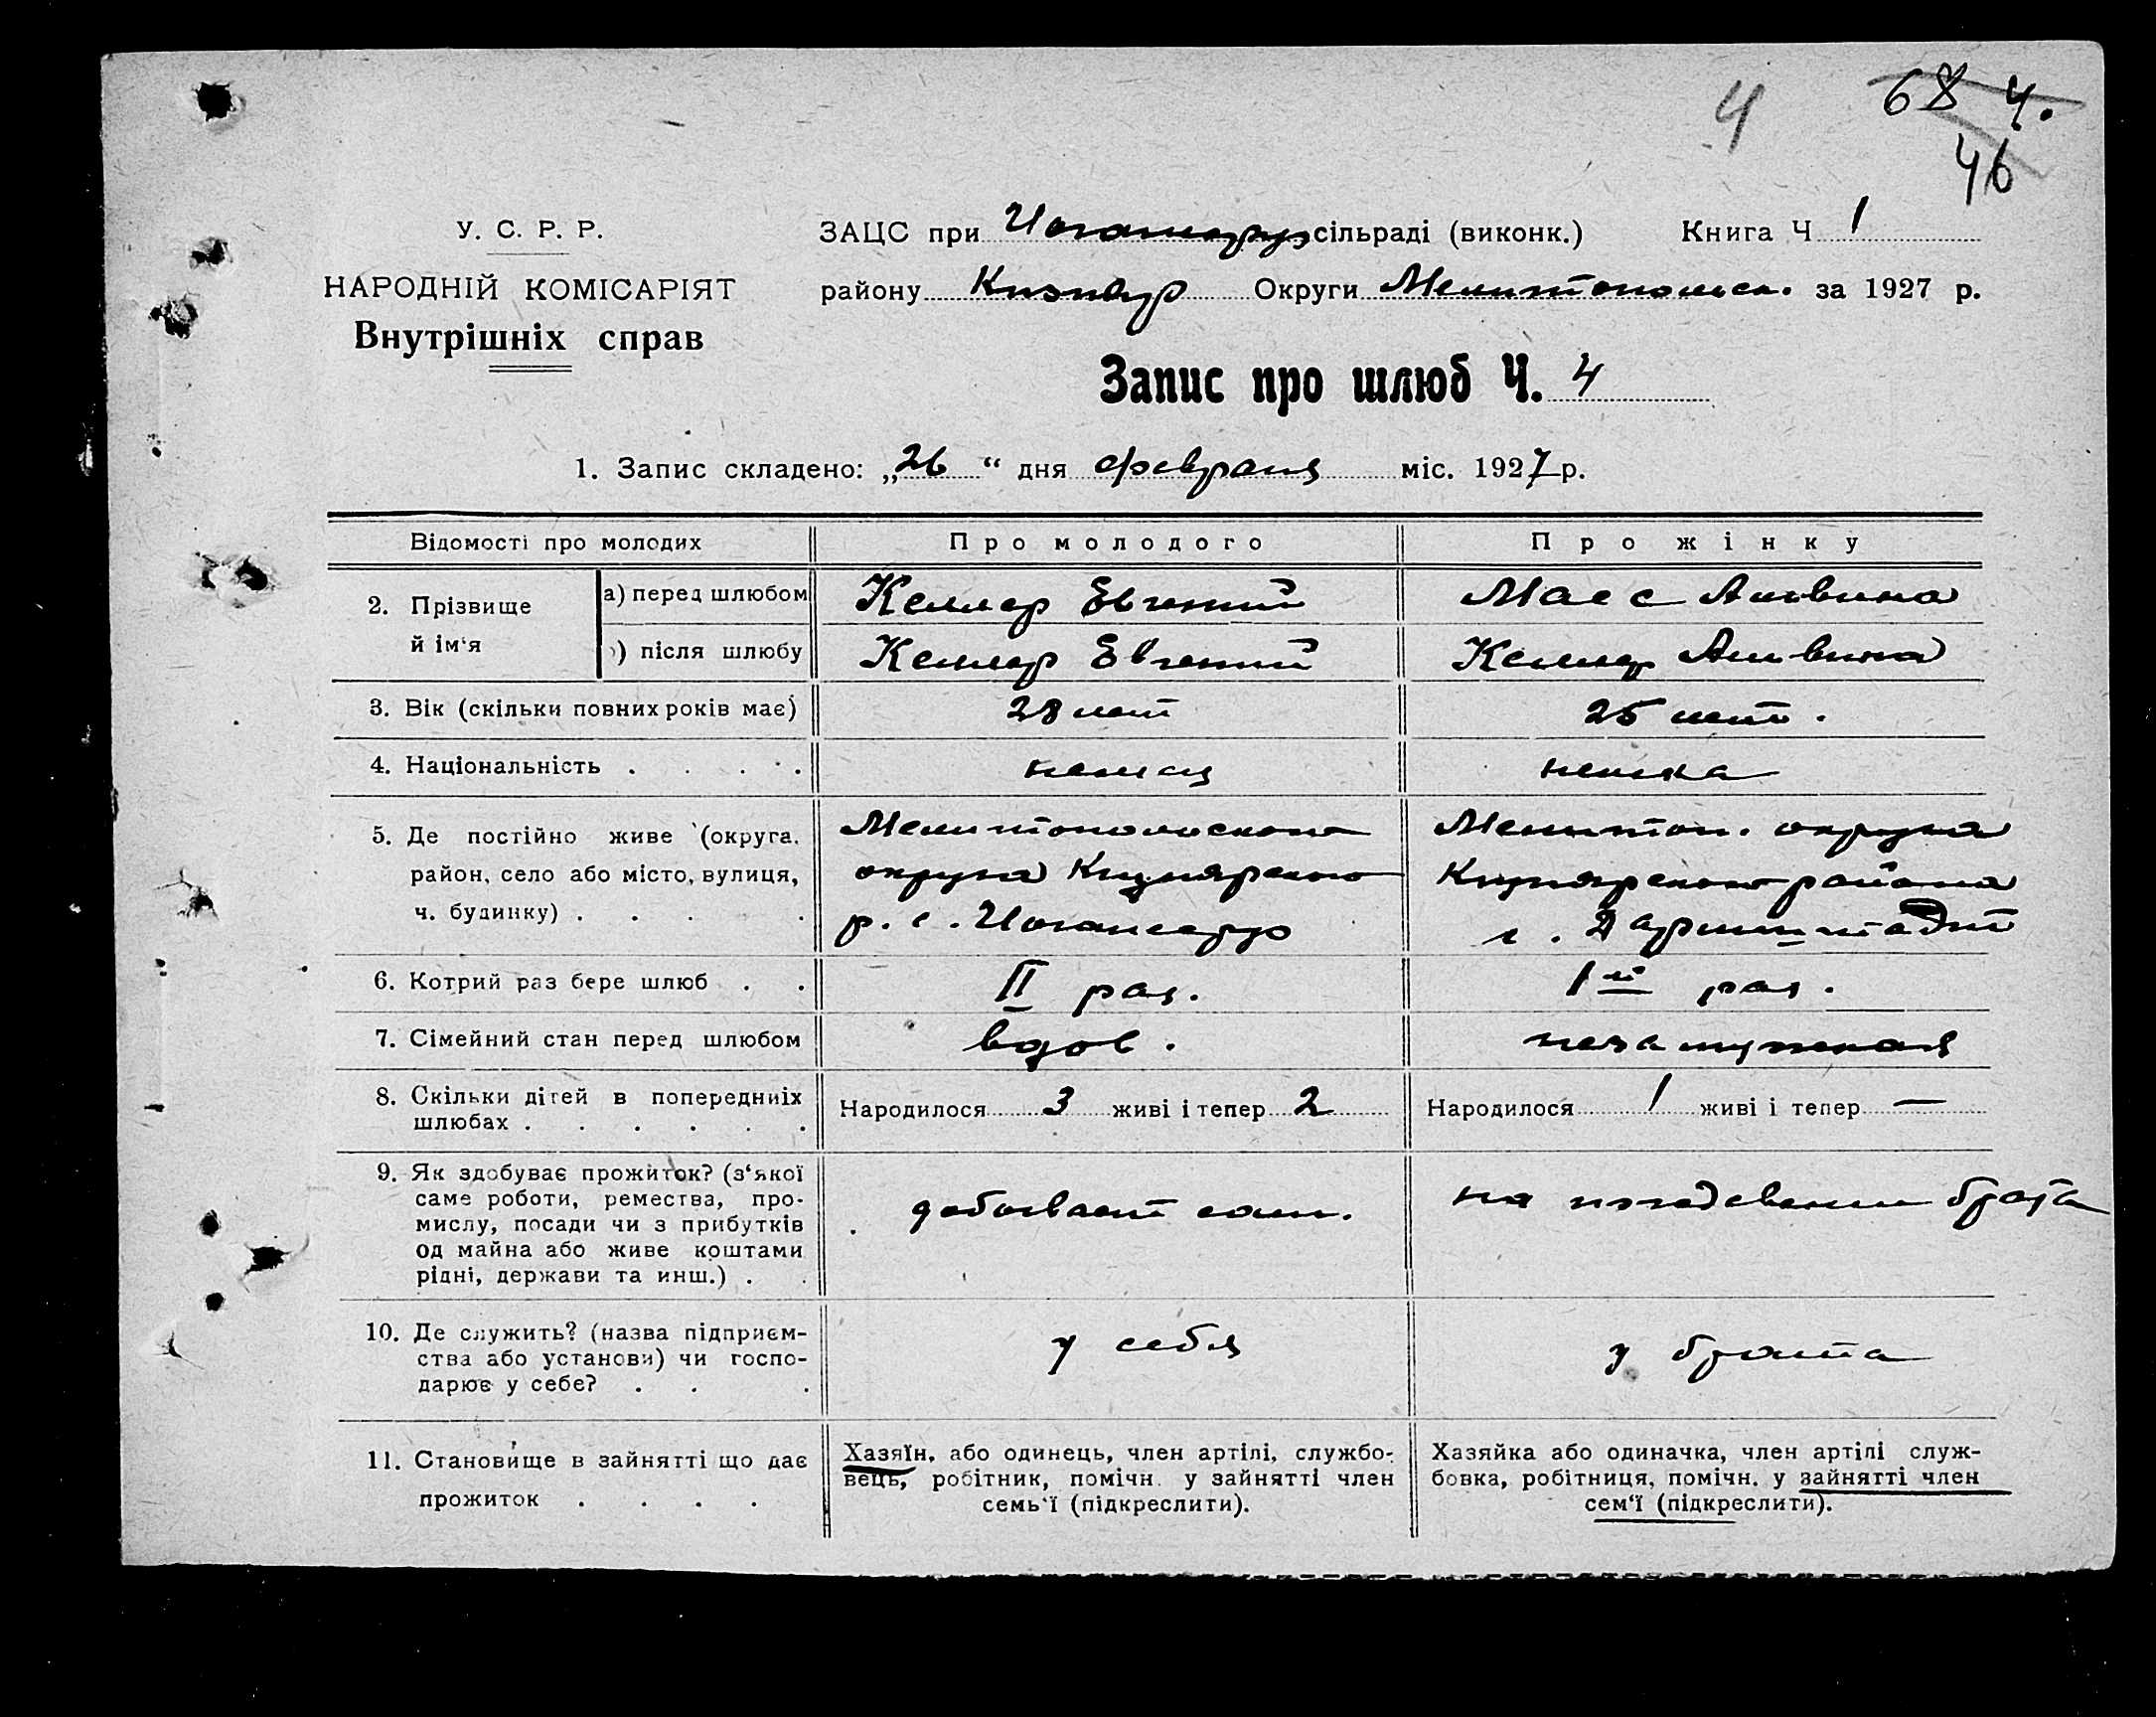 4 68 4.
46
У. С. Р. Р.
ЗАЦС при Иогансруэ сільраді (виконк.) Книга Ч 1
НАРОДНІЙ КОМІСАРІЯТ
району Кизияр Округи Мелитопольск. за 1927 р.
Внутрішніх справ
Запис про шлюб Ч. 4
1. Запис складено: „26“ дня февраля міс. 1927 р.
Відомості про молодих Про молодого Про жінку
2. Прізвище й ім‘я
а) перед шлюбом Келлер Евгений Маес Альвина
) після шлюбу Келлер Евгений Келлер Альвина
3. Вік (скільки повних років має) 28 лет 25 лет.
4. Національність . . . . немец немка
5. Де постійно живе (округа, Мелитопольского Мелитоп. округа
район, село або місто, вулиця, округа Кизиярского Кизиярского района
ч. будинку) . . . . р. с. Иогансруэ с. Дармштадт
6. Котрий раз бере шлюб . . II раз. 1й раз.
7. Сімейний стан перед шлюбом вдов. незамужняя
8. Скільки дітей в попередниіх
шлюбах . . . . . . Народилося 3 живі і тепер 2 Народилося 1 живі і тепер —
9. Як здобуває прожиток? (з‘якої
саме роботи, ремества, про-
мислу, посади чи з прибутків
од майна або живе коштами
рідні, держави та инш.) . .
добывает сам.
на иждевении брата
10. Де служить? (назва підприєм-
ства або установи) чи госпо-
дарює у себе? . . .
у себя
у брата
11. Становище в зайнятті що дає
прожиток . . . .
Хазяїн, або одинець, член артілі, службо-
вець, робітник, помічн. у зайнятті член
семь‘ї (підкреслити).
Хазяйка або одиначка, член артілі служ-
бовка, робітниця, помічн. у зайнятті член
сем‘ї (підкреслити).